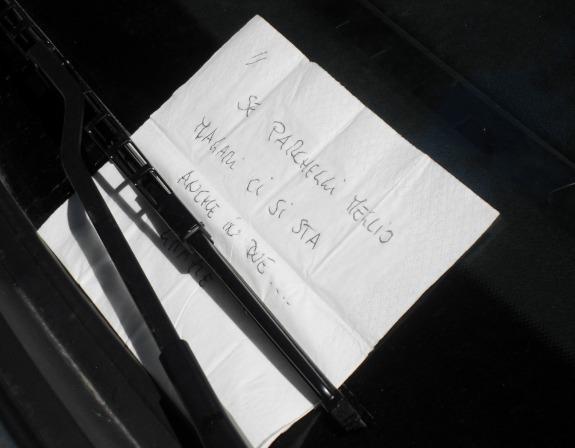 SE PARCHEGGI MEGLIO
MAGARI CI SI STA
ANCHE IN DUE....